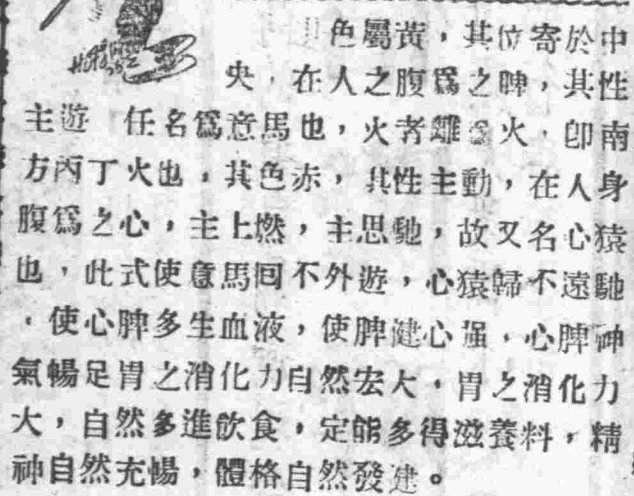 色屬黃，其位寄於中
央，在人之腹爲之脾，其性
主遊　任名爲意馬也，火者離爲火，卽南
方丙丁火也，其色赤，其性主動，在人身
腹爲之心，主上燃，主思馳，故又名心猿
也，此式使意馬回不外遊，心猿歸不遠馳
，使心脾多生血液，使脾健心强，心脾神
氣暢足胃之消化力自然宏大，胃之消化力
大，自然多進飲食，定能多得滋養料，精
神自然充暢，體格自然發建。